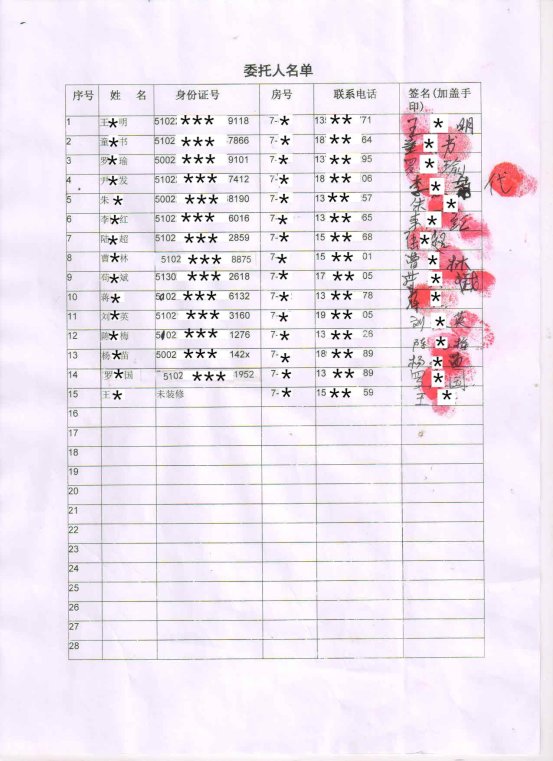 委托人名单
序号 姓 名 身份证号 房号 联系电话 签名(加盖手印)
1 王*明 5102 *** 9118 7-* 13 ** 71 王*明
2 童*书 5102 *** 7866 7-* 18 ** 64 童*书
3 罗*瑜 5002 *** 9101 7-* 13 ** 95 罗*瑜
4 尹*发 5102 *** 7412 7-* 18 ** 06 * 代
5 朱* 5002 *** 8190 7-* 13 ** 57 朱*
6 李*红 5102 *** 6016 7-* 13 ** 65 李*红
7 陆*超 5102 *** 2859 7-* 15 ** 68 陆*超
8 曹*林 5102 *** 8875 7-* 15 ** 01 曹*林
9 荀*斌 5130 *** 2618 7-* 17 ** 05 荀*斌
10 蒋* 5102 *** 6132 7-* 13 ** 78 蒋*
11 刘*英 5102 *** 3160 7-* 19 ** 05 刘*英
12 陈*梅 5102 *** 1276 7-* 13 ** 26 陈*梅
13 杨*苗 5002 *** 142x 7-* 18 ** 89 杨*苗
14 罗*国 5102 *** 1952 7-* 13 ** 89 罗*国
15 王* 未装修 7-* 15 ** 59 王*
16
17
18
19
20
21
22
23
24
25
26
27
28